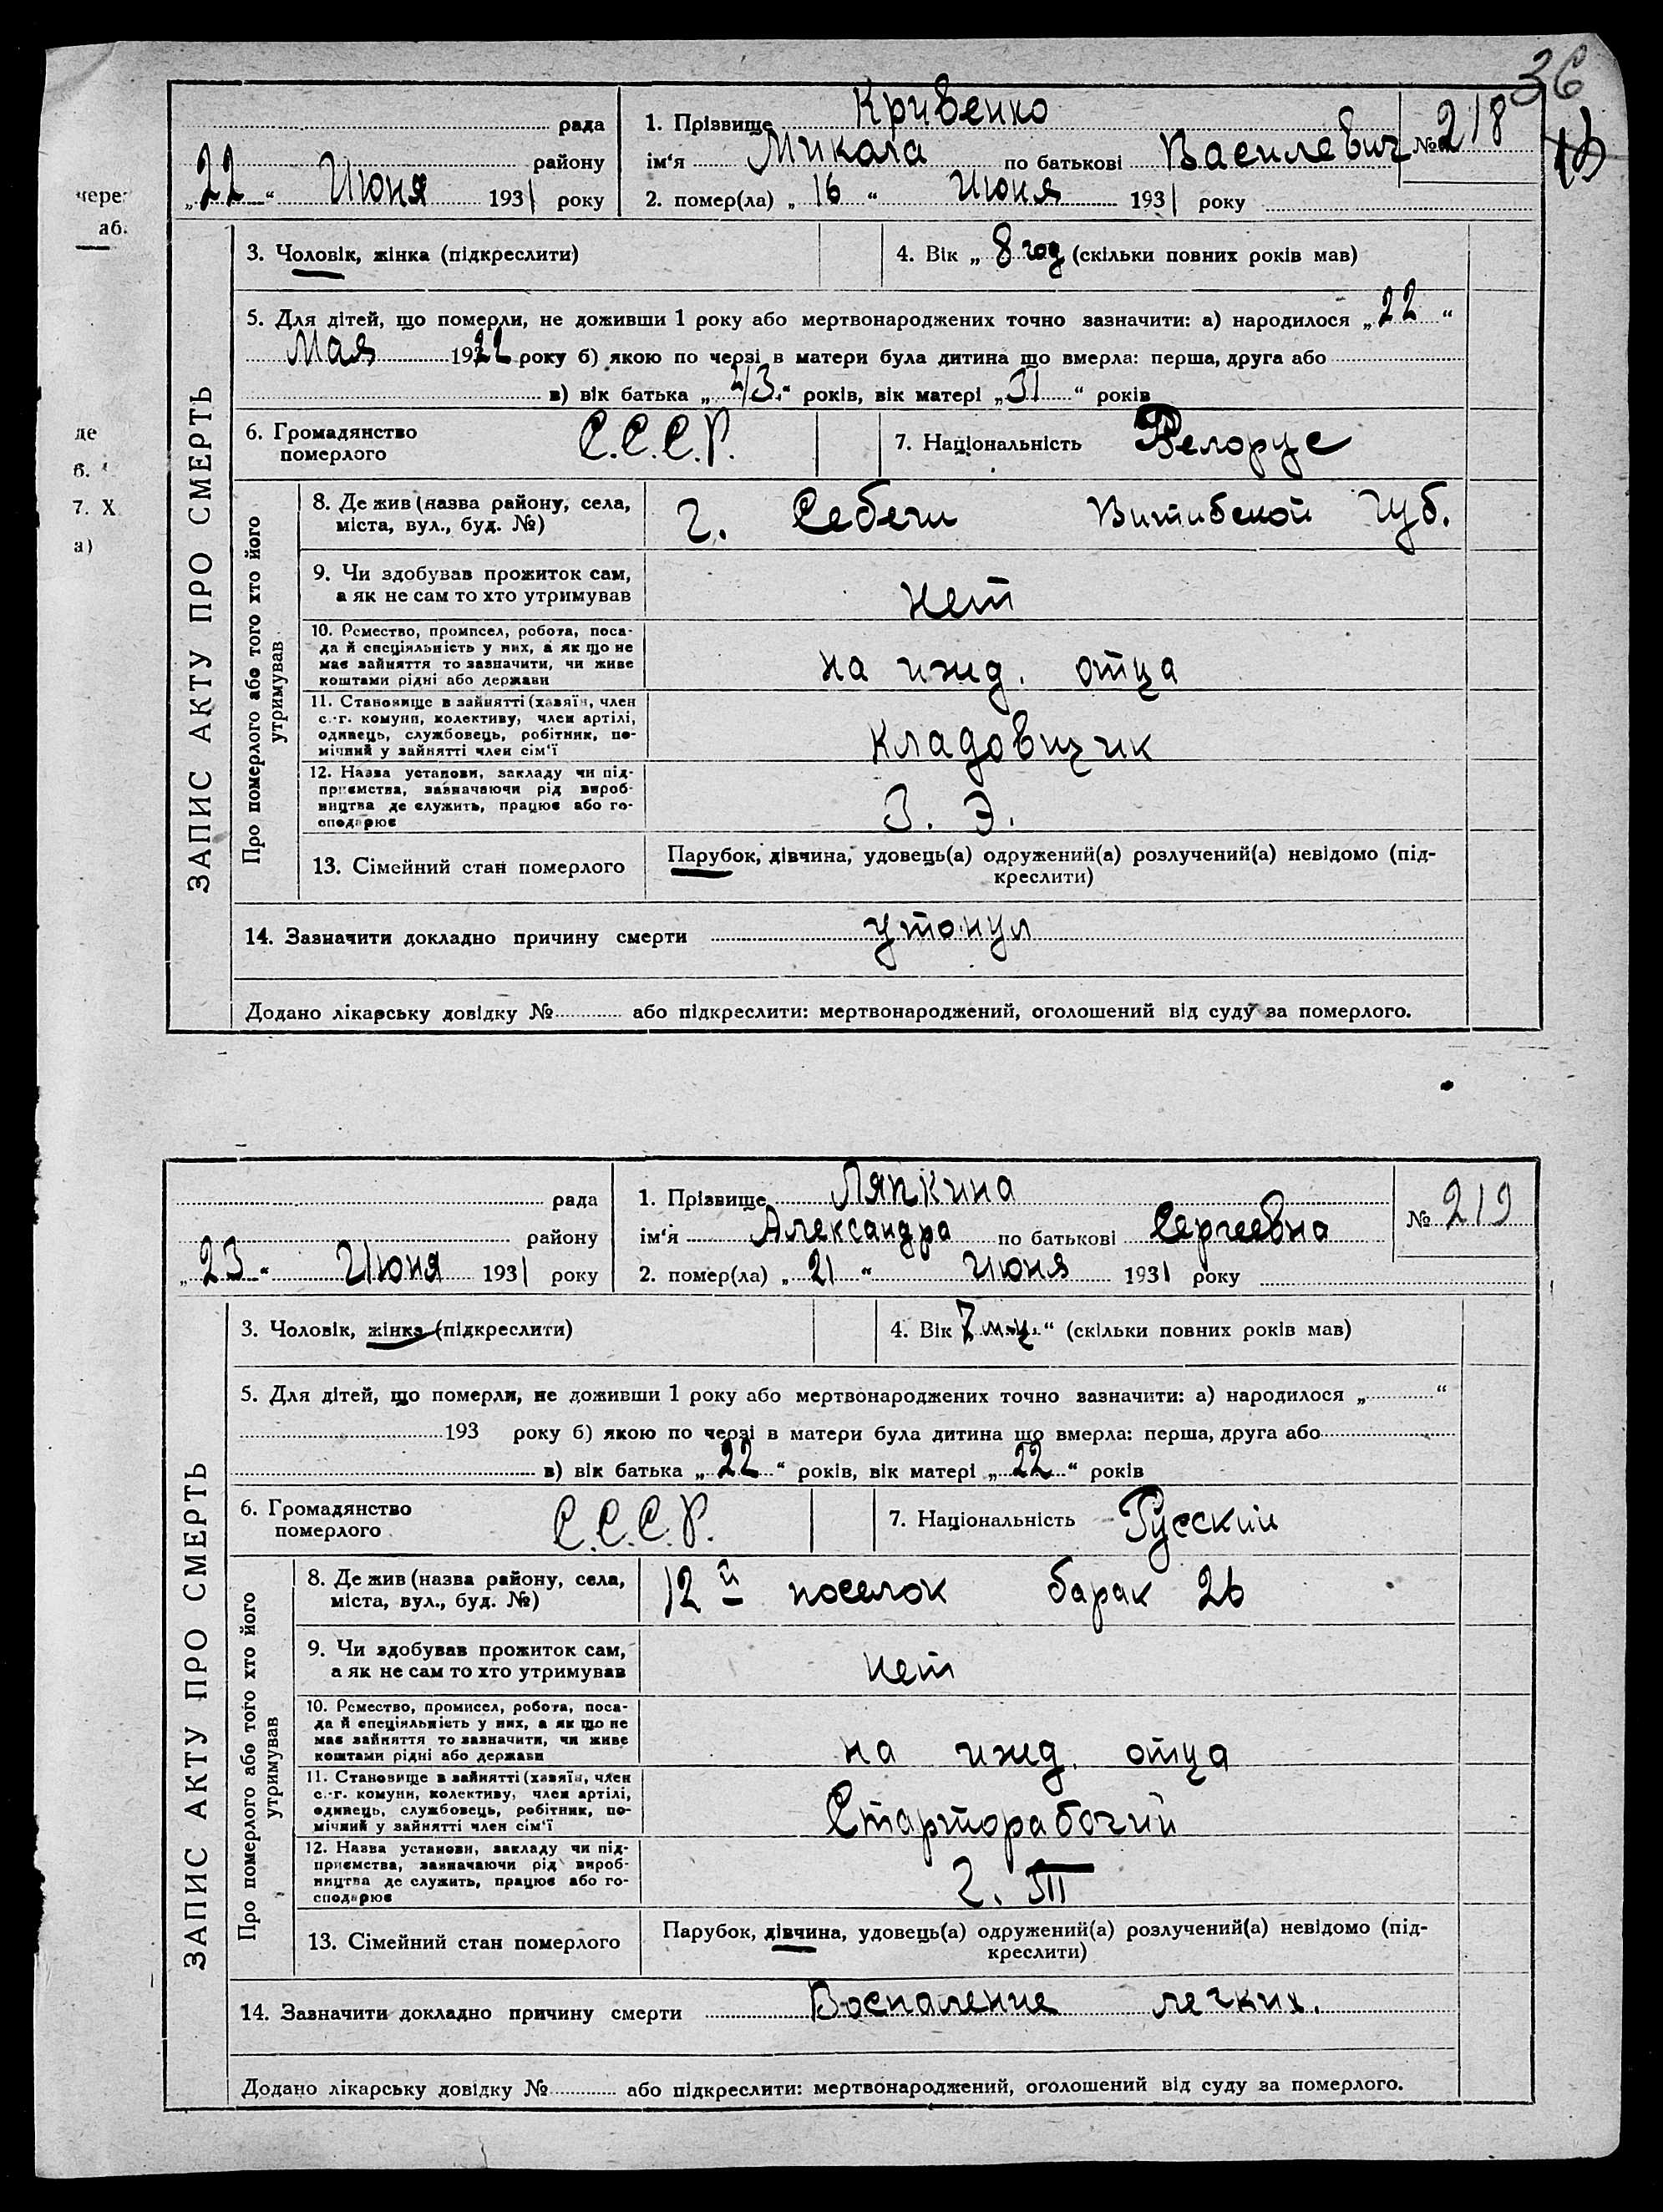 36
рада
1. Прізвище Кривенко
№ 218
району
ім'я Микола по батькові Василевич
„22“ Июня 1931 року
2. помер(ла) „16“ Июня 1931 року
3. Чоловік, жінка (підкреслити)
4. Вік „8 год (скільки повних років мав)
5. Для дітей, що померли, не доживши 1 року або мертвонароджених точно зазначити: а) народилося „22“
Мая 1922 року б) якою по черзі в матери була дитина що вмерла: перша, друга або
в) вік батька „43“ років, вік матері „31“ років
6. Громадянство
померлого
С.С.С.Р.
7. Національність Белорус
ЗАПИС АКТУ ПРО СМЕРТЬ
Про померлого або того хто його
утримував
8. Де жив (назва району, села,
міста, вул., буд. №)
г. Себеж Витибской губ.
9. Чи здобував прожиток сам,
а як не сам то хто утримував
нет
10. Ремество, промисел, робота, поса-
да й спеціяльність у них, а як що не
має зайняття то зазначити, чи живе
коштами рідні або держави
на ижд. отца
11. Становище в зайнятті (хазяїн, член
с.-г. комуни, колективу, член артілі,
одинець, службовець, робітник, по-
мічний у зайнятті член сім'ї
Кладовщик
12. Назва установи, закладу чи під-
приємства, зазначаючи рід вироб-
ництва де служить, працює або го-
сподарює
З. Э.
13. Сімейний стан померлого
Парубок, дівчина, удовець(а) одружений(а) розлучений(а) невідомо (під-
креслити)
14. Зазначити докладно причину смерти утонул
Додано лікарську довідку № або підкреслити: мертвонароджений, оголошений від суду за померлого.
рада
1. Прізвище Ляпкина
№ 219
району
ім'я Александра по батькові Сергеевна
„23“ Июня 1931 року
2. помер(ла) „21“ Июня 1931 року
3. Чоловік, жінка (підкреслити)
4. Вік 7 м-ц.“ (скільки повних років мав)
5. Для дітей, що померли, не доживши 1 року або мертвонароджених точно зазначити: а) народилося „ “
193 року б) якою по черзі в матери була дитина що вмерла: перша, друга або
в) вік батька „22“ років, вік матері „22“ років
6. Громадянство
померлого
С.С.С.Р.
7. Національність Русский
ЗАПИС АКТУ ПРО СМЕРТЬ
Про померлого або того хто його
утримував
8. Де жив (назва району, села,
міста, вул., буд. №)
12й поселок барак 26
9. Чи здобував прожиток сам,
а як не сам то хто утримував
нет
10. Ремество, промисел, робота, поса-
да й спеціяльність у них, а як що не
має зайняття то зазначити, чи живе
коштами рідні або держави
на ижд. отца
11. Становище в зайнятті (хазяїн, член
с.-г. комуни, колективу, член артілі,
одинець, службовець, робітник, по-
мічний у зайнятті член сім'ї
Старторабочий
12. Назва установи, закладу чи під-
приємства, зазначаючи рід вироб-
ництва де служить, працює або го-
сподарює
13. Сімейний стан померлого
Парубок, дівчина, удовець(а) одружений(а) розлучений(а) невідомо (під-
креслити)
14. Зазначити докладно причину смерти Воспаление легких.
Додано лікарську довідку № або підкреслити: мертвонароджений, оголошений від суду за померлого.